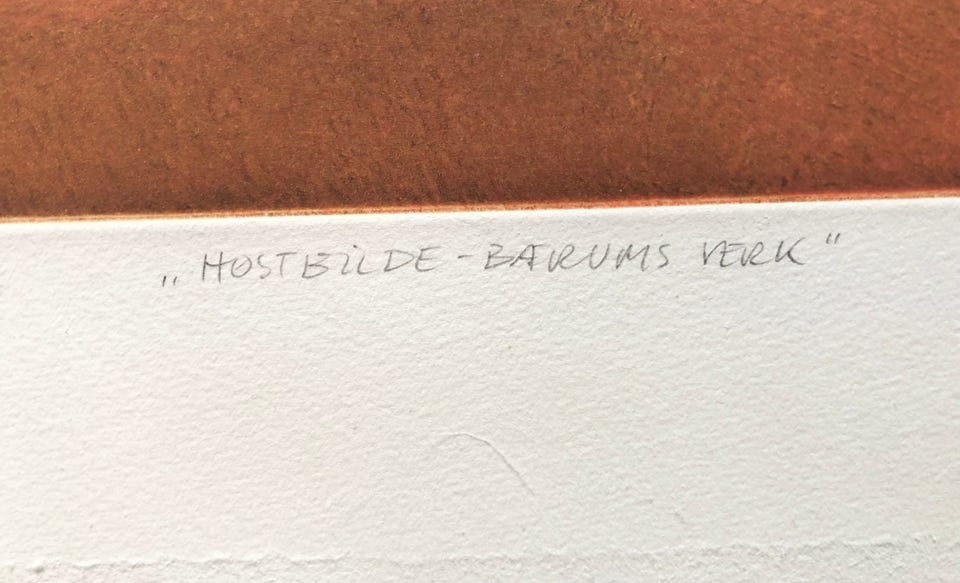 „HOSTBILDE - BÆRUMS VERK“